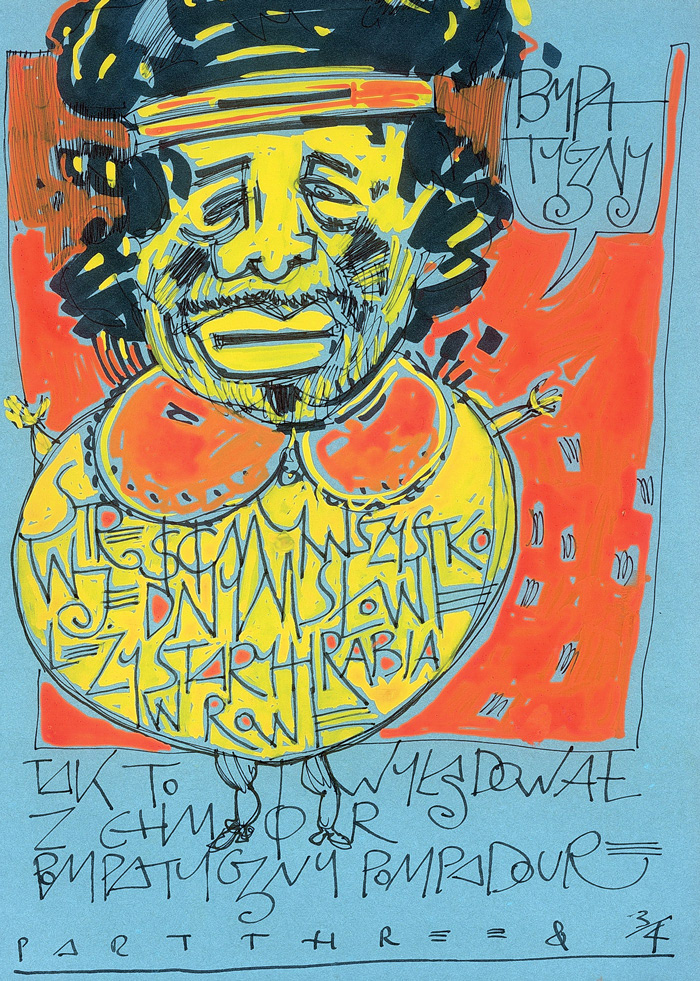 BMPA
TYZNY
STREŚĆMY WSZYSTKO
W JEDNYM SŁOWIE
LEŻY STARY HRABIA
W ROWIE
TAK TO WYLĄDOWAŁ
Z CHMUR
POMPATYCZNY POMPADOUR
PART THREE & 3/4